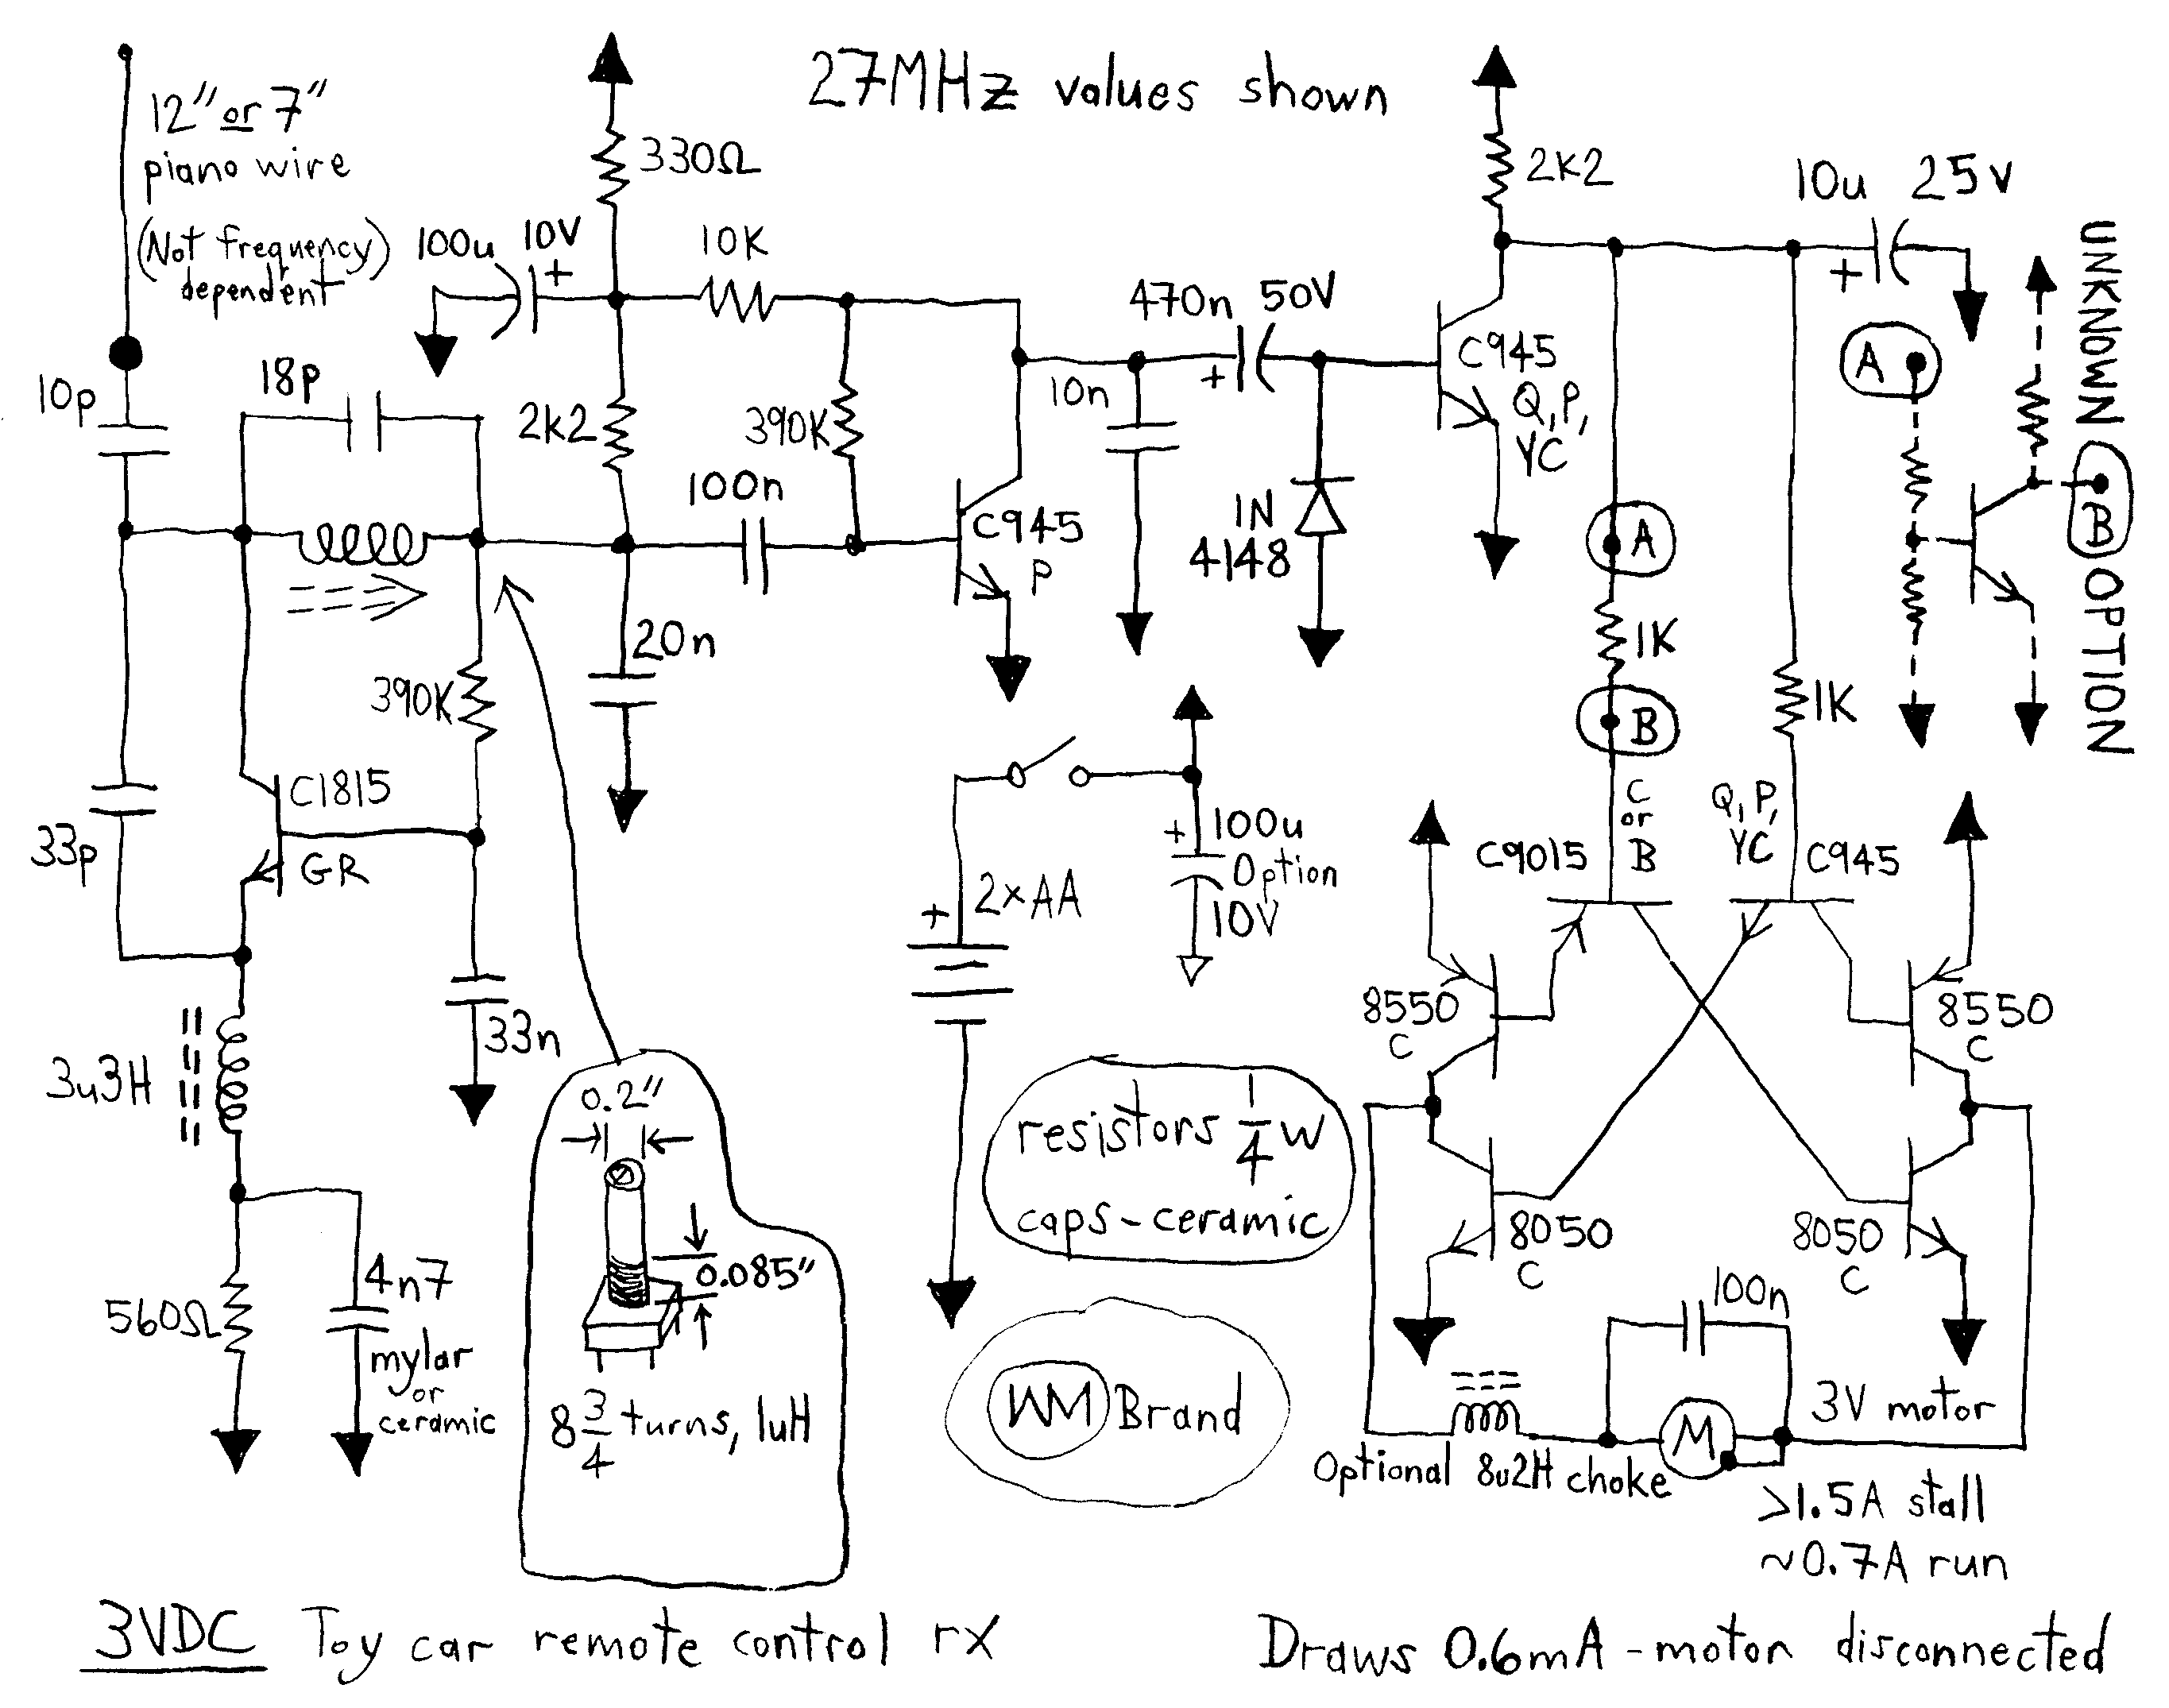 27MHz values shown
12" or 7"
piano wire
(Not frequency)
dependent
330Ω
2k2
10u 25V
100u 10V
+
10K
470n 50V
+
+
10p
18p
2k2
390K
10n
C945
Q, P,
YC
A
100n
C945
P
1N
4148
A
B
UNKNOWN OPTION
20n
1K
390K
B
1K
C1815
GR
33p
+
100u
Option
10V
2xAA
+
C
or
B
C9015
Q, P,
YC
C945
33n
8550
C
8550
C
3u3H
0.2"
0.085"
8 3/4 turns, 1uH
resistors 1/4 W
caps-ceramic
8050
C
8050
C
4n7
mylar
or
ceramic
560Ω
WM Brand
100n
M
3V motor
Optional 8u2H choke
>1.5A stall
~0.7A run
3VDC Toy car remote control rx
Draws 0.6mA - motor disconnected